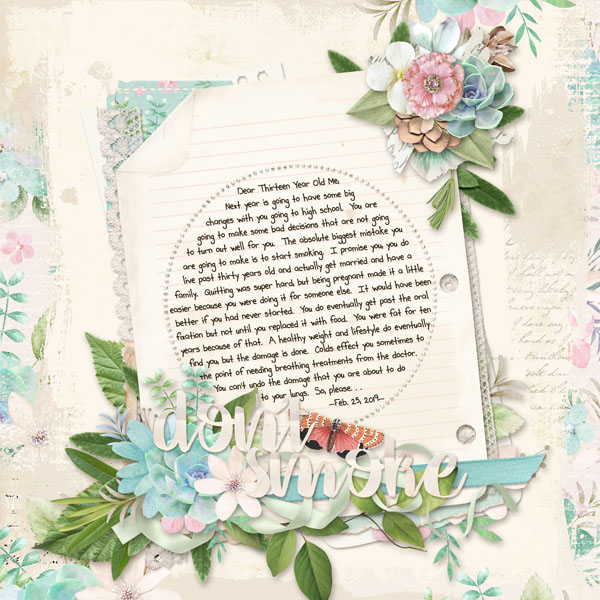 Dear Thirteen Year Old Me,
Next year is going to have some big
changes with you going to high school. You are
going to make some bad decisions that are not going
to turn out well for you. The absolute biggest mistake you
are going to make is to start smoking. I promise you you do
live past thirty years old and actually get married and have a
family. Quitting was super hard, but being pregnant made it a little
easier because you were doing it for someone else. It would have been
better if you had never started. You do eventually get past the oral
fixation but not until you replaced it with food. You were fat for ten
years because of that. A healthy weight and lifestyle do eventually
find you but the damage is done. Colds effect you sometimes to
the point of needing breathing treatments from the doctor.
You can't undo the damage that you are about to do
to your lungs. So, please. . .
-Feb. 25, 2019-
don't
smoke